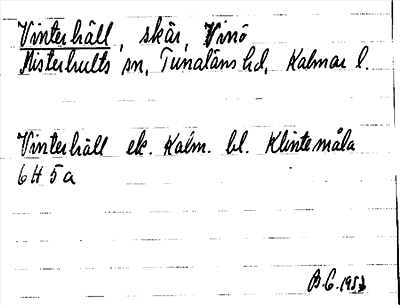 Vinterhäll, skär, Vinö
Misterhults sn, Tunaläns hd, Kalmar l.
Vinterhäll ek. Kalm. bl. Klintemåla
6H5a